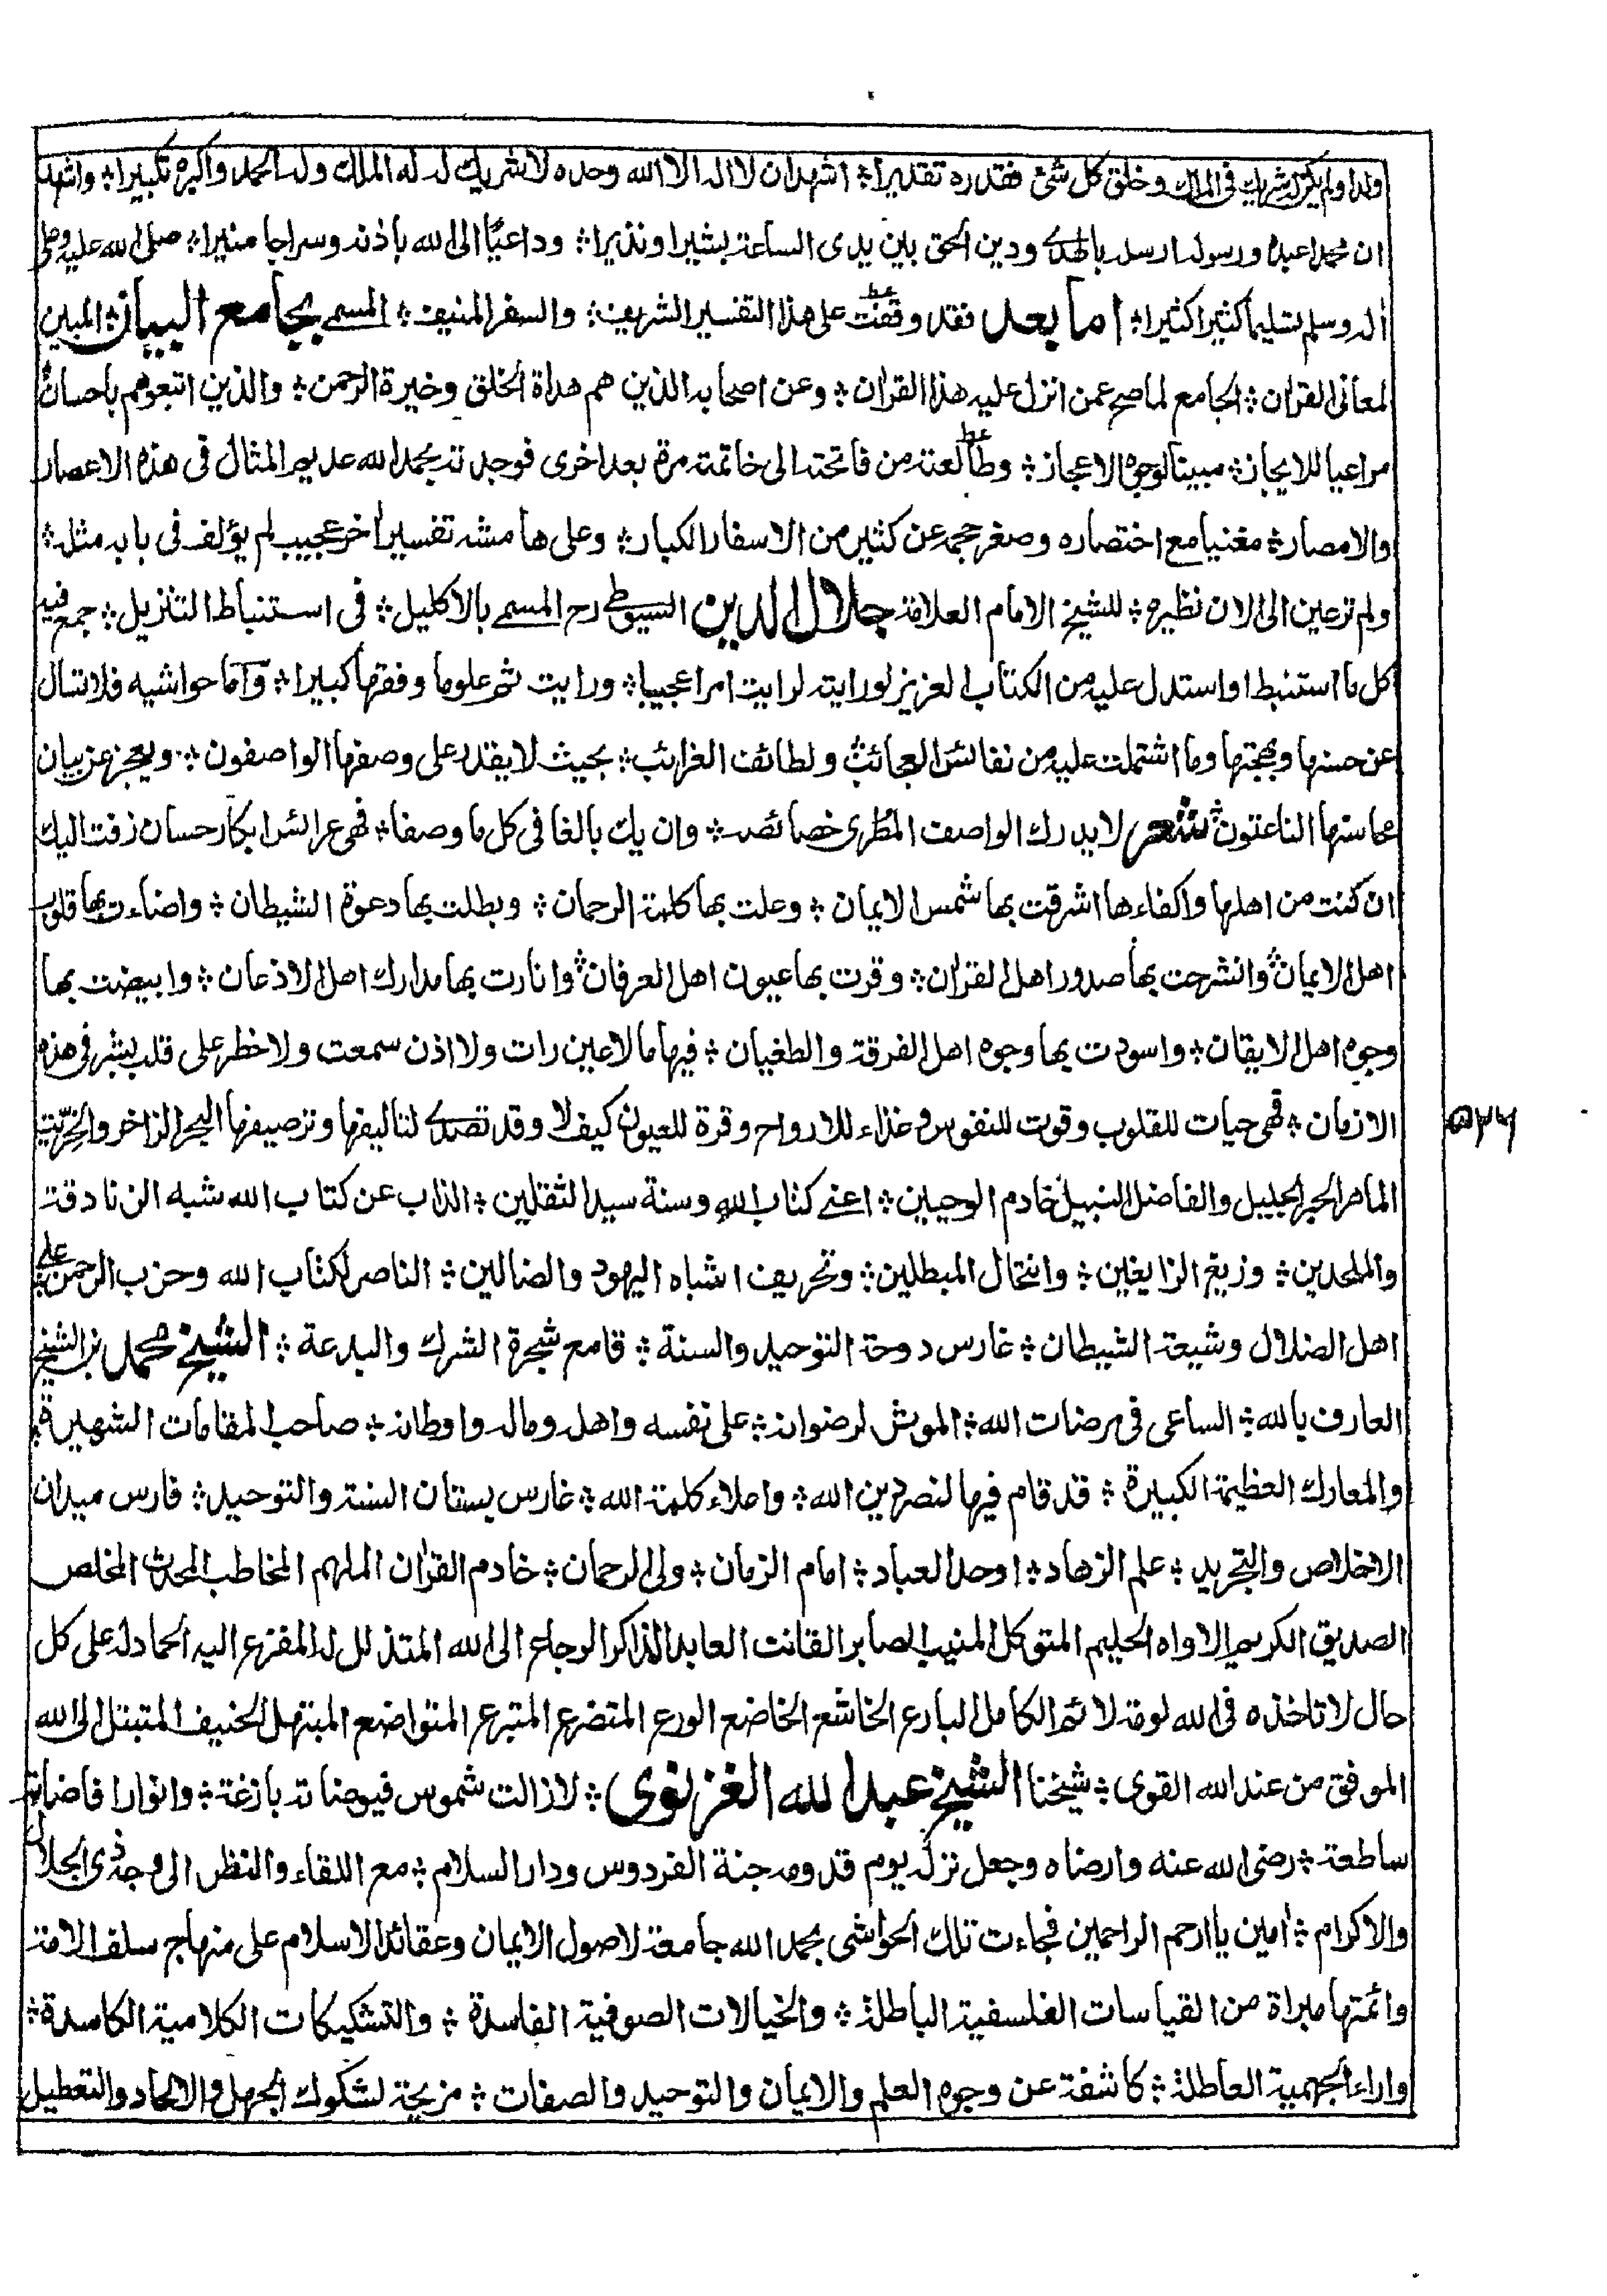 ولدا ولم يكن له شريك فى الملك وخلق كل شئ فقدره تقديرا ؞ اشهد ان لا اله الا الله وحده لا شريك له له الملك وله الحمد واكبره تكبيرا ؞ واشهد
ان محمدا عبده ورسوله ارسله بالهدى ودين الحق بين يدى الساعة بشيرا ونذيرا ؞ وداعيًا الى الله باذنه وسراجا منيرا ؞ صلى الله عليه وعلى
اله وسلم تسليما كثيرا كثيرا ؞ اما بعد فقد وقفت على هذا التفسير الشريف ؞ والسفر المنيف ؞ المسمى بجامع البيان ؞ المبين
لمعانى القران ؞ الجامع لما صح عمن انزل عليه هذا القران ؞ وعن اصحابه الذين هم هداة الخلق وخيرة الرحمن ؞ والذين اتبعوهم باحسان ؞
مراعيا للايجاز ؞ مبينا لوجوه الاعجاز ؞ وطالعته من فاتحته الى خاتمته مرة بعد اخرى فوجدته بحمد الله عديم المثال فى هذه الاعصار
والامصار ؞ مغنيا مع اختصاره وصغر حجمه عن كثير من الاسفار الكبار ؞ وعلى هامشه تفسير اخر عجيب لم يؤلف فى بابه مثله ؞
ولم تر عين الى الان نظيره ؞ للشيخ الامام العلامة جلال الدين السيوطى رح المسمى بالاكليل ؞ فى استنباط التنزيل ؞ جمع فيه
كل ما استنبط او استدل عليه من الكتاب العزيز لو رايته لرايت امرا عجيبا ؞ ورايت ثم علوما وفقها كبيرا ؞ واما حواشيه فلا تسال
عن حسنها وبهجتها وما اشتملت عليه من نفائس العجائب ولطائف الغرائب ؞ بحيث لا يقدر على وصفها الواصفون ؞ ويعجز عن بيان
محاسنها الناعتون ؞ شعر لا يدرك الواصف المطرى خصائصه ؞ وان يك بالغا فى كل ما وصفا ؞ فهى عرائس ابكار حسان زفت اليك
ان كنت من اهلها واكفاءها اشرقت بها شمس الايمان ؞ وعلت بها كلمة الرحمان ؞ وبطلت بها دعوة الشيطان ؞ واضاءت بها قلوب
اهل الايمان ؞ وانشرحت بها صدور اهل القران ؞ وقرت بها عيون اهل العرفان ؞ وانارت بها مدارك اهل الاذعان ؞ وابيضت بها
وجوه اهل الايقان ؞ واسودت بها وجوه اهل الفرقة والطغيان ؞ فيها ما لا عين رات ولا اذن سمعت ولا خطر على قلب بشر فى هذه
الازمان ؞ فهى حيات للقلوب وقوت للنفوس وغذاء للارواح وقرة للعيون كيف لا وقد تصدى لتاليفها وترصيفها البحر الزاخر والخرّيت
الماهر الحبر الجليل والفاضل النبيل خادم الوحيين ؞ اعنى كتاب الله وسنة سيد الثقلين ؞ الذاب عن كتاب الله شبه الزنادقة
والملحدين ؞ وزيغ الزايغين ؞ وانتحال المبطلين ؞ وتحريف اشباه اليهود والضالين ؞ الناصر لكتاب الله وحزب الرحمن ؞ على
اهل الضلال وشيعة الشيطان ؞ غارس دوحة التوحيد والسنة ؞ قامع شجرة الشرك والبدعة ؞ الشيخ محمد بن الشيخ
العارف بالله ؞ الساعى فى مرضات الله ؞ الموثر لرضوانه ؞ على نفسه واهله وماله واوطانه ؞ صاحب المقامات الشهيرة ؞
والمعارك العظيمة الكبيرة ؞ قد قام فيها لنصر دين الله ؞ واعلاء كلمة الله ؞ غارس بستان السنة والتوحيد ؞ فارس ميدان
الاخلاص والتجريد ؞ علم الزهاد ؞ اوحد العباد ؞ امام الزمان ؞ ولى الرحمان ؞ خادم القران الملهم المخاطب المحدث المخلص
الصديق الكريم الاواه الحليم المتوكل المنيب الصابر القانت العابد الذاكر الرجاع الى الله المتذلل له المفزع اليه الحامد له على كل
حال لا تاخذه فى الله لومة لائم الكامل البارع الخاشع الخاضع الورع المتضرع المتبرع المتواضع المبتهل الحنيف المتبتل الى الله
الموفق من عند الله القوى ؞ شيخنا الشيخ عبد الله الغزنوى ؞ لا زالت شموس فيوضاته بازغة ؞ وانوار افاضاته
ساطعة ؞ رضى الله عنه وارضاه وجعل نزله يوم قدومه جنة الفردوس ودار السلام ؞ مع اللقاء والنظر الى وجه ذى الجلال
والاكرام ؞ امين يا ارحم الراحمين فجاءت تلك الحواشى بحمد الله جامعة لاصول الايمان وعقائد الاسلام على منهاج سلف الامة
وائمتها مبراة من القياسات الفلسفية الباطلة ؞ والخيالات الصوفية الفاسدة ؞ والتشكيكات الكلامية الكاسدة ؞
واراء الجهمية العاطلة ؞ كاشفة عن وجوه العلم والايمان والتوحيد والصفات ؞ مزيحة لشكوك الجهل والالحاد والتعطيل